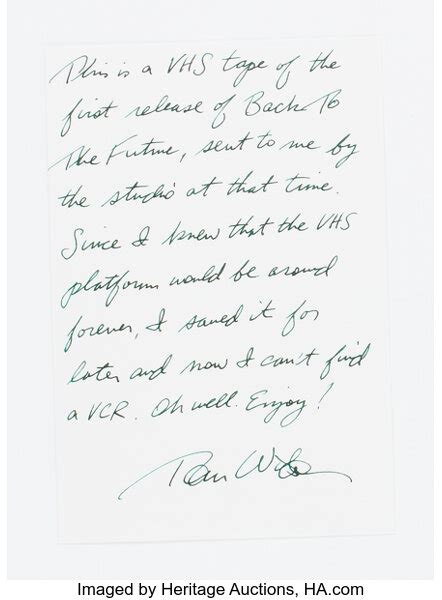 This is a VHS tape of the
first release of Back To
The Future, sent to me by
the studio at that time.
Since I knew that the VHS
platform would be around
forever, I saved it for
later and now I can't find
a VCR. Oh well. Enjoy!
Tom Wilson
Imaged by Heritage Auctions, HA.com